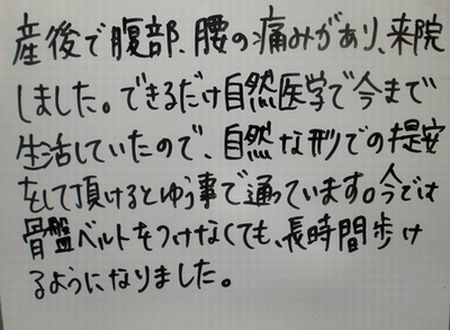 産後で腹部、腰の痛みがあり、来院
しました。できるだけ自然医学で今まで
生活していたので、自然な形での提案
をして頂けるとゆう事で通っています。今では
骨盤ベルトをつけなくても、長時間歩け
るようになりました。